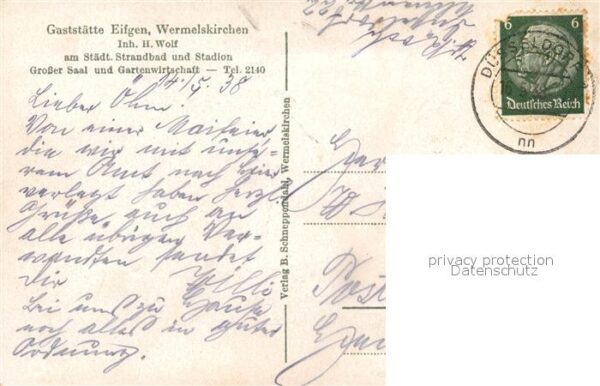 Gaststätte Eifgen, Wermelskirchen
Inh. H. Wolf
am Städt. Strandbad und Stadion
Großer Saal und Gartenwirtschaft — Tel. 2140
14./5. 38
Lieber Ohm!
Von einer Maifeier,
die wir mit unse-
rem Amt nach hier
verlegt haben herzl.
Grüße, auch an
alle übrigen Ver-
wandten sendet
Dir Willi
Bei uns zu Hause
noch alles in guter
Ordnung.
Verlag B. Schneppendahl, Wermelskirchen
6 6
Deutsches Reich
DÜSSELDORF
nn
privacy protection
Datenschutz